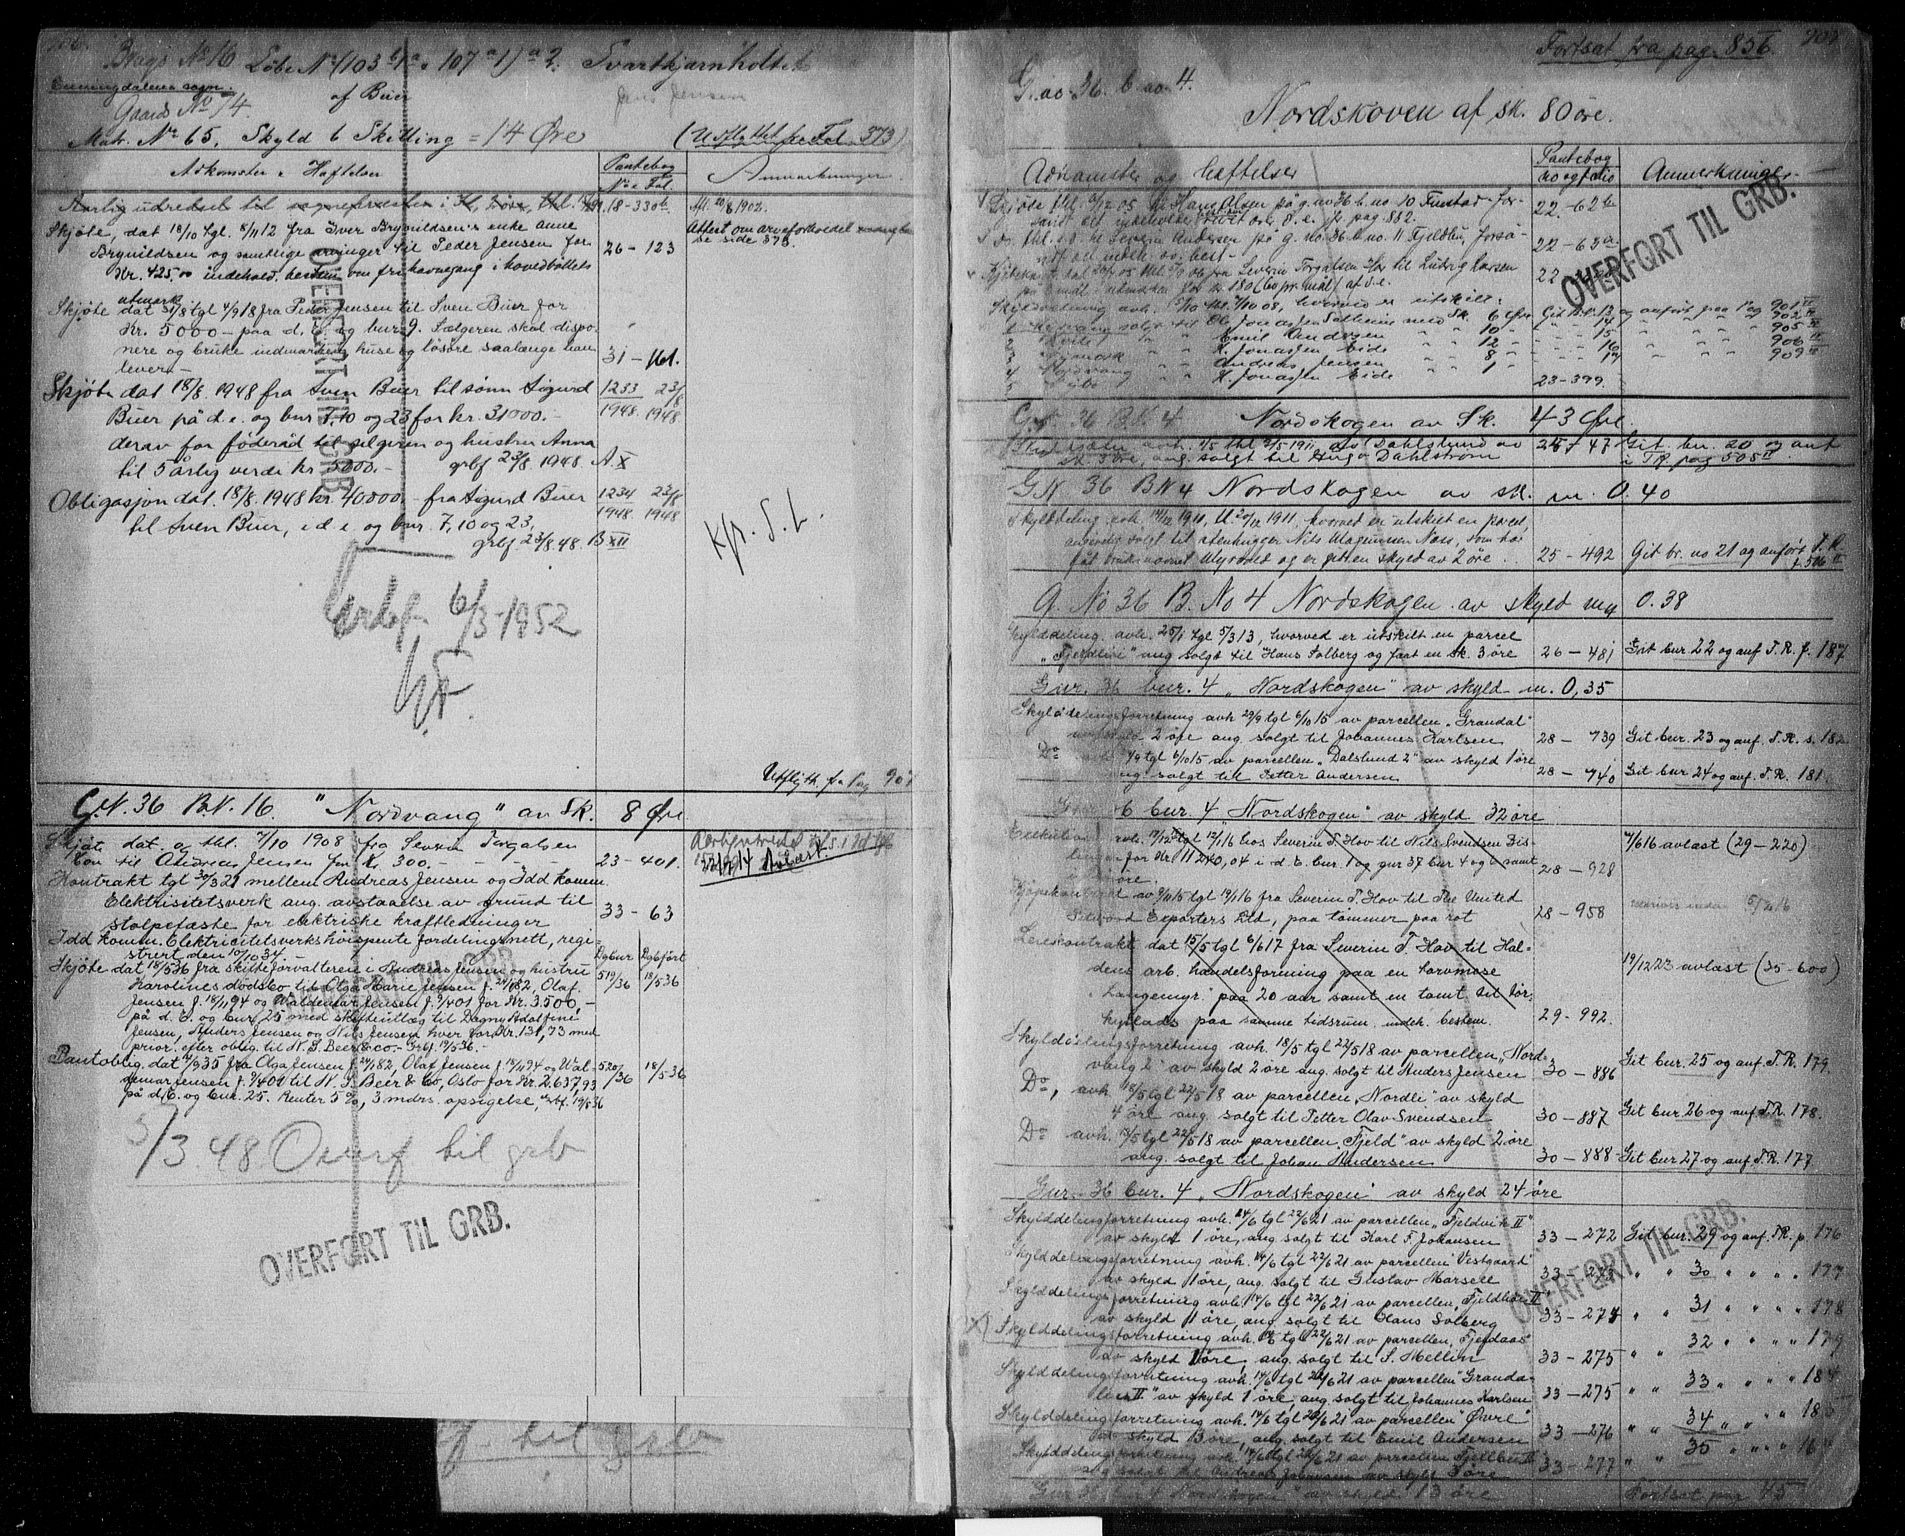 Brugs No 16 Löbe No (103 b 1 a & 107 a 1) a 2. Svartkjærnholtet
Enningdalens sogn. af Bier Jens Jensen
Gaards No 74.
Matr. No 65. Skyld 6 Skilling = 14 Øre (Udflyttet fra Fol. 373)
Adkomster & Hæftelser Pantebog No & Fol. Anmærkninger
Aarlig udredsel til sognepræsten i 18-330 b. Afl. 20/8 1902.
Skjöte, dat 18/10 tgl. 8/11 12 fra Iver Brynildsens enke Anne Attest om arveforholdet
Brynildsen og samtlige arvinger til Peder Jensen for 26 - 123 se side 373.
Kr. 425.00 indehold. bestem. om fri havnegang i hovedbölets
utmark
Skjöte dat 31/8 tgl 4/9 18 fra Peder Jensen til Sven Buer for
Kr. 5000 - paa d. e. og bur 9. Sælgeren skal dispo-
nere og bruke indmarken, huse og lösöre saalænge han
lever. 31 - 161.
Skjöte dat 18/8 1948 fra Sven Buer til sönn Sigurd 1233 23/8
Buer på d. e. og bur 7, 10 og 23 for kr. 31000.- 1948 1948
derav for föderåd til selgeren og hustru Anna
til 5 årlig verdi kr 5000.- grbf 23/8 1948 A X
Obligasjon dat. 18/8. 1948 kr. 40000.- fra Sigurd Buer 1234 23/8
til Sven Buer, i d. e. og bur. 7, 10 og 23. 1948 1948
grbf 23/8.48. B XII
Kfr. S. L.
Overbf 6/3-1952
OVERFØRT TIL GRB
Utflyth. fr. Pag 907
G.N. 36 B.N. 16. "Nordvang" av Sk. 8 Øre
Skjöt, dat. og thl. 7/10 1908 fra Severin Torgalsen
Hov til Andreas Jensen for Kr. 300.- 23 - 401.
Kontrakt tgl 30/3 21 mellem Andreas Jensen og Idd komm.
Elektrisitetsverk ang. avstaaelse av grund til
stolpefæste for elektriske kraftledninger 33 - 63
Idd komm. Elektricitetsverks höispente fordelingsnett, regi-
strert den 10/10 34.- Dgbnr Dgb.fört
Skjöte dat 18/5 36 fra skifteforvalteren i Andreas Jensen og hustru 519/36 18/5 36
Karolines dödsbo til Olga Marie Jensen f. 24/1 82, Olaf
Jensen f. 18/11 94 og Waldemar Jensen f. 9/4 01 for Kr. 3500,-
på d. E. og bur. 25 med skifteutlæg til Dagny Adolfine
Jensen, Anders Jensen og Nils Jensen hver for Kr. 131,73 med
prior. efter oblig. til N. S. Beer & co.- Grbf. 19/5 36.-
Pantoblig. dat 14/9 35 fra Olga Jensen f. 24/1 82, Olaf Jensen f. 18/11 94 og Wal- 520/36 18/5 36
demar Jensen f. 9/4 01 til N. S. Beer & Co, Oslo for Kr. 2.637,93
på d. E. og bur. 25. Renter 5 %, 3 mdrs. opsigelse, Grbf. 19/5 36
5/3.48. Overf til grb
OVERFØRT TIL GRB.
f. til grb
Fortsat fra pag. 856. 907
G. no. 36. b. no. 4.
Nordskoven af sk. 80 öre.
Adkomster og hæftelser Pantebog no og folio Anmerkninger
Skjöte thl. 5/12 05 til Hans Olsen på g. no 36 b. no 10 22-62 b
do thl. s. d. til Severin Andersen på g. no. 36 b. no. 11 Fjeldbu, forsö- 22-63 a
Kjöbekontrakt fra Severin Torgalsen Hov til Ludvig Larsen
OVERFØRT TIL GRB.
Skylddeling avh. 5/10 thl. 7/10 08, hvorved er utskilt:
1 solgt til Ole Jonassen Solheim med Sk. 6 Øre Git B.N. 13 og anfört paa Pag 901 II
2 " " Emil Andersen " " 10 " " " 14 " " " " 902 II
3 " " K. Jonassen Eide " " 12 " " " 15 " " " " 905 II
4 Nordvang " " Andreas Jensen " " 8 " " " 16 " " " " 906 II
5 " " K. Jonassen Eide " " 1 " " " 17 " " " " 909 II
23-399.
G.N. 36 B.N. 4 Nordskogen av Sk. 43 Øre
Skylddeling avh. 1/5 thl 2/5 1911, av Dahlslund av 25 - 47 Git. bur. 20 og anf
sk. 3 Øre, ang. solgt til Hugo Dahlström i T.R. pag 505 II
G N 36 B N 4 Nordskogen av sk. m. 0.40
Skylddeling avh. 14/12 1911, tl. 20/12 1911, hvorved er utskilt en parcel,
angivelig solgt til stenhugger Nils Magnussen Næss, som har
fåt bruksnavnet Myrvold og er gitten skyld av 2 öre. 25 - 492 Git br. no 21 og anfört T.R. f. 506 II
G. No 36 B. No 4 Nordskogen av skyld my 0.38
Skylddeling avh. 25/1 tgl 5/3 13, hvorved er utskilt en parcel
"Fjeldlie" ang solgt til Hans Solberg og faat en sk. 3 öre 26 - 481 Git bur 22 og anf T.R. p. 187
Gnr. 36 bur. 4 "Nordskogen" av skyld m. 0,35
Skylddelingsforretning avh 29/9 tgl 6/10 15 av parcellen "Grandal"
av skyld 2 öre ang solgt til Johannes Karlsen 28 - 739 Git bur. 23 og anf. T.R. s. 182
Do avh 29/9 tgl 6/10 15 av parcellen "Dalslund 2" av skyld 1 öre
ang. solgt til Petter Andersen 28 - 740 Git bur. 24 og anf. T.R. 181.
Gnr 36 bur 4 "Nordskogen" av skyld 32 öre
Exekution avh. tgl 12/1 16 hos Severin T. Hov til Nils Svendsen Bis-
for Kr. 11 240,04 i d. E. bur. 1 og gnr 37 bur 4 og 6 samt 28 - 928 avlæst (29-220)
Kjöpekontrakt av tgl 19/1 16 fra Severin T. Hov til The United
Pitwood Exporters Ltd, paa tömmer paa rot 28 - 958
Leiekontrakt dat 15/5 tgl 6/6 17 fra Severin T. Hov til Hal-
dens arb. handelsforening paa en torvmose 19/12 23 avlæst (35-600)
"Langemyr" paa 20 aar samt en tomt til tör-
keplads paa samme tidsrum, indeh. bestem. 29 - 992.
Skylddelingsforretning avh. 18/5 tgl 22/5 18 av parcellen "Nord-
vang 2" av skyld 2 öre ang. solgt til Anders Jensen 30 - 886 Git bur. 25 og anf. T.R. 179.
Do, avh 18/5 tgl 22/5 18 av parcellen "Nordli" av skyld
4 öre ang. solgt til Petter Olav Svendsen 30 - 887 Git bur 26 og anf T.R. 178.
Do avh. 18/5 tgl 22/5 18 av parcellen "Fjeld" av skyld 2 öre
ang. solgt til Johan Andersen 30 - 888 Git bur 27 og anf T.R. 177
Gnr. 36 bur. 4 "Nordskogen" av skyld 24 öre
Skylddelingsforretning avh. 14/6 tgl 22/6 21 av parcellen "Fjeldvik II"
av skyld 1 öre, ang. solgt til Karl F. Johansen 33 - 272 Git bur. 29 og anf. T.R. p. 176
Skylddelingsforretning avh. 14/6 tgl 22/6 21 av parcellen "Vestgaard"
av skyld 1 öre, ang. solgt til Gustav Marsell 33 - 273 " " 30 " " " 177
Skylddelingsforretning avh. 14/6 tgl 22/6 21 av parcellen "Fjeldheim II"
av skyld 1 öre, ang. solgt til Hans Solberg 33 - 274 " " 31 " " " 178
Skylddelingsforretning avh. 14/6 tgl 22/6 21 av parcellen "Fjeldaas"
av skyld 1 öre, ang. solgt til S. Mellin 33 - 275 " " 32 " " " 179
Skylddelingsforretning avh. 14/6 tgl 22/6 21 av parcellen "Granda-
len II" av skyld 1 öre, ang. solgt til Johannes Karlsen 33 - 275 " " 33 " " " 184
Skylddelingsforretning avh. 14/6 tgl 22/6 21 av parcellen "Øvre"
av skyld 3 öre, ang. solgt til Emil Andersen 33 - 276 " " 34 " " "
Skylddelingsforretning avh. 14/6 tgl 22/6 21 av parcellen Fjellbu II
ang solgt til Andreas Johansen av skyld 3 öre 33 - 277 " " 35 " " "
OVERFØRT TIL GRB.
Gnr 36 bur 4 "Nordskogen" av skyld 13 öre Fortsat pag 45